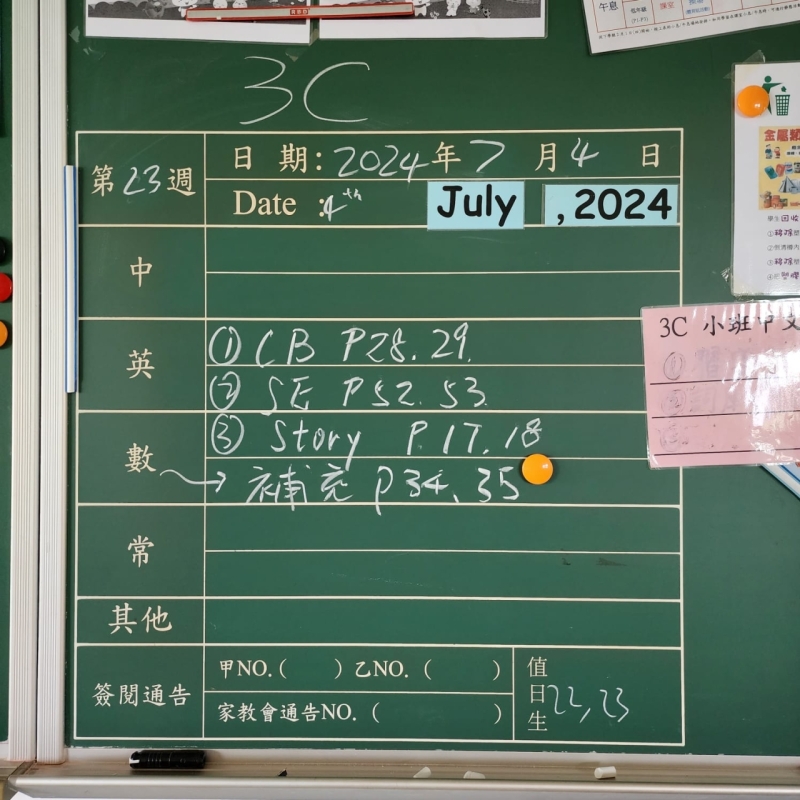 3C
第23週
日 期: 2024年7月4日
Date : 4th July , 2024
中
英
① CB P28. 29.
② SE P52. 53.
③ Story P.17, 18
數
→ 補充 p34、35
常
其他
簽閱通告
甲NO. ( ) 乙NO. ( )
家教會通告NO. ( )
值日生 22, 23
3C 小班中文
①
午息